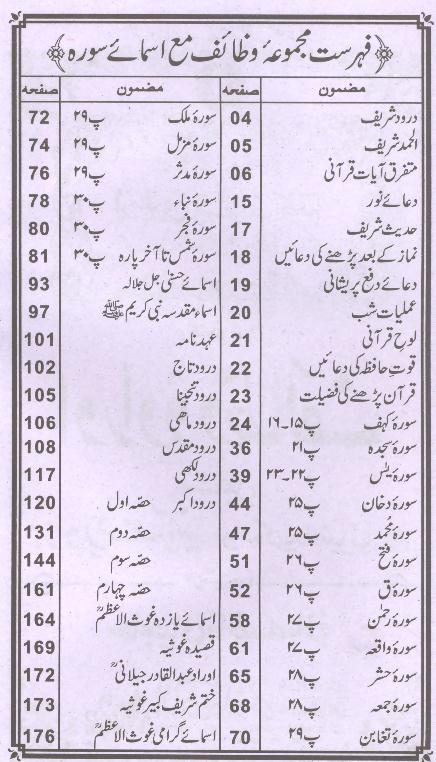 فہرست مجموعۂ وظائف مع اسمائے سورہ
مضمون صفحہ مضمون صفحہ
درود شریف 04 سورۂ ملک پ۲۹ 72
الحمد شریف 05 سورۂ مزمل پ۲۹ 74
متفرق آیات قرآنی 06 سورۂ مدثر پ۲۹ 76
دعائے نور 15 سورۂ نباء پ۳۰ 78
حدیث شریف 17 سورۂ فجر پ۳۰ 80
نماز کے بعد پڑھنے کی دعائیں 18 سورۂ شمس تا آخر پارہ پ۳۰ 81
دعائے دفع پریشانی 19 اسمائے حسنٰی جل جلالہ 93
عملیات شب 20 اسماء مقدسہ نبی کریم ﷺ 97
لوح قرآنی 21 عہد نامہ 101
قوتِ حافظہ کی دعائیں 22 درود تاج 102
قرآن پڑھنے کی فضیلت 23 درود تنجینا 105
سورۂ کہف پ۱۵۔۱۶ 24 درود ماہی 106
سورۂ سجدہ پ۲۱ 36 درود مقدس 108
سورۂ یٰس پ۲۲۔۲۳ 39 درود لکھی 117
سورۂ دخان پ۲۵ 44 درود اکبر حصّہ اول 120
سورۂ محمد پ۲۵ 47 حصّہ دوم 131
سورۂ فتح پ۲۶ 51 حصّہ سوم 144
سورۂ ق پ۲۶ 52 حصّہ چہارم 161
سورۂ رحمٰن پ۲۷ 58 اسمائے یازدہ غوث الاعظمؒ 164
سورۂ واقعہ پ۲۷ 61 قصیدہ غوثیہ 169
سورۂ حشر پ۲۸ 65 اوراد عبدالقادر جیلانیؒ 172
سورۂ جمعہ پ۲۸ 68 ختم شریف کبیر غوثیہ 173
سورۂ تغابن پ۲۹ 70 اسمائے گرامی غوث الاعظمؒ 176